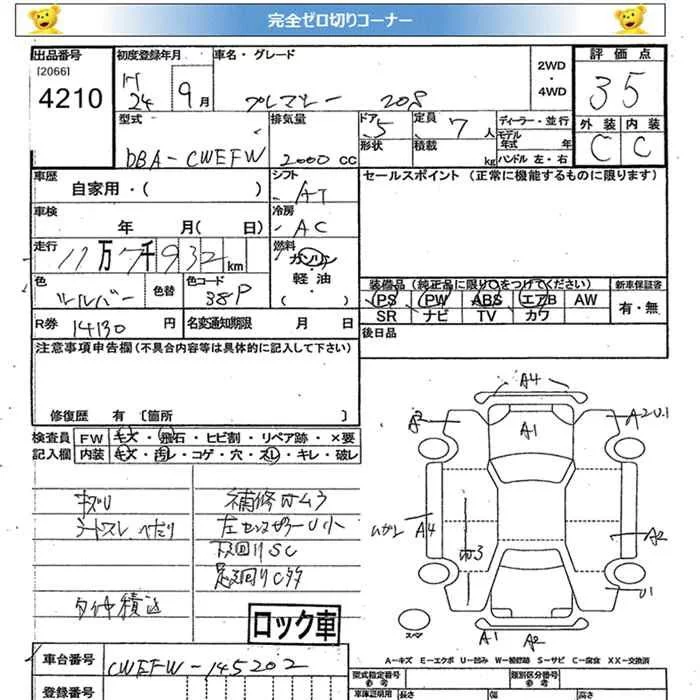 完全ゼロ切りコーナー
出品番号
[2066]
4210
初度登録年月
H24 9月
車名・グレード
プレマシー 20S
2WD・4WD
評価点
3 5
外装 内装
C C
型式
DBA-CWEFW
排気量
2000 cc
ドア 5
形状
定員 7 人
積載 kg
ディーラー・並行
モデル年式 年
ハンドル 左・右
車歴
自家用・( )
シフト
AT
セールスポイント (正常に機能するものに限ります)
車検
年 月( 日)
冷房
AC
走行
11万7千932km
燃料
ガソリン
軽油
・( )
色
シルバー
色替
色コード
38P
装備品 (純正品に限り○をつけてください)
PS PW ABS エアB AW
SR ナビ TV カワ
新車保証書
有・無
R券 14130 円
名変通知期限 月 日
後日品
注意事項申告欄(不具合内容等は具体的に記入して下さい)
修復歴 有 〔箇所 〕
検査員記入欄
FW キズ・飛石・ヒビ割・リペア跡・×要
内装 キズ・汚レ・コゲ・穴・スレ・キレ・破レ
補修ムラ
下回りSC
足回りC多
ロック車
車台番号
CWEFW-145202
登録番号
A4
A1
A2 U1
A4
A2
U1
A1 A2
スペア
A-キズ E-エクボ U-凹み W-補修跡 S-サビ C-腐食 XX-交換済
型式指定番号
参考
類別区分番号
参考
車庫証明用 長さ 幅 高さ
参考